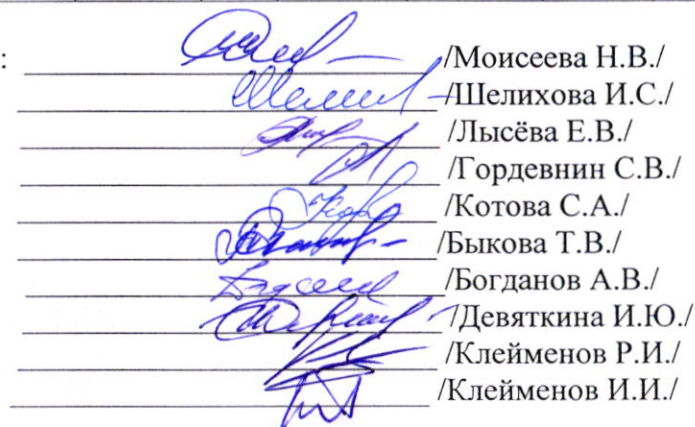 :
/Моисеева Н.В./
/Шелихова И.С./
/Лысёва Е.В./
/Гордевнин С.В./
/Котова С.А./
/Быкова Т.В./
/Богданов А.В./
/Девяткина И.Ю./
/Клейменов Р.И./
/Клейменов И.И./